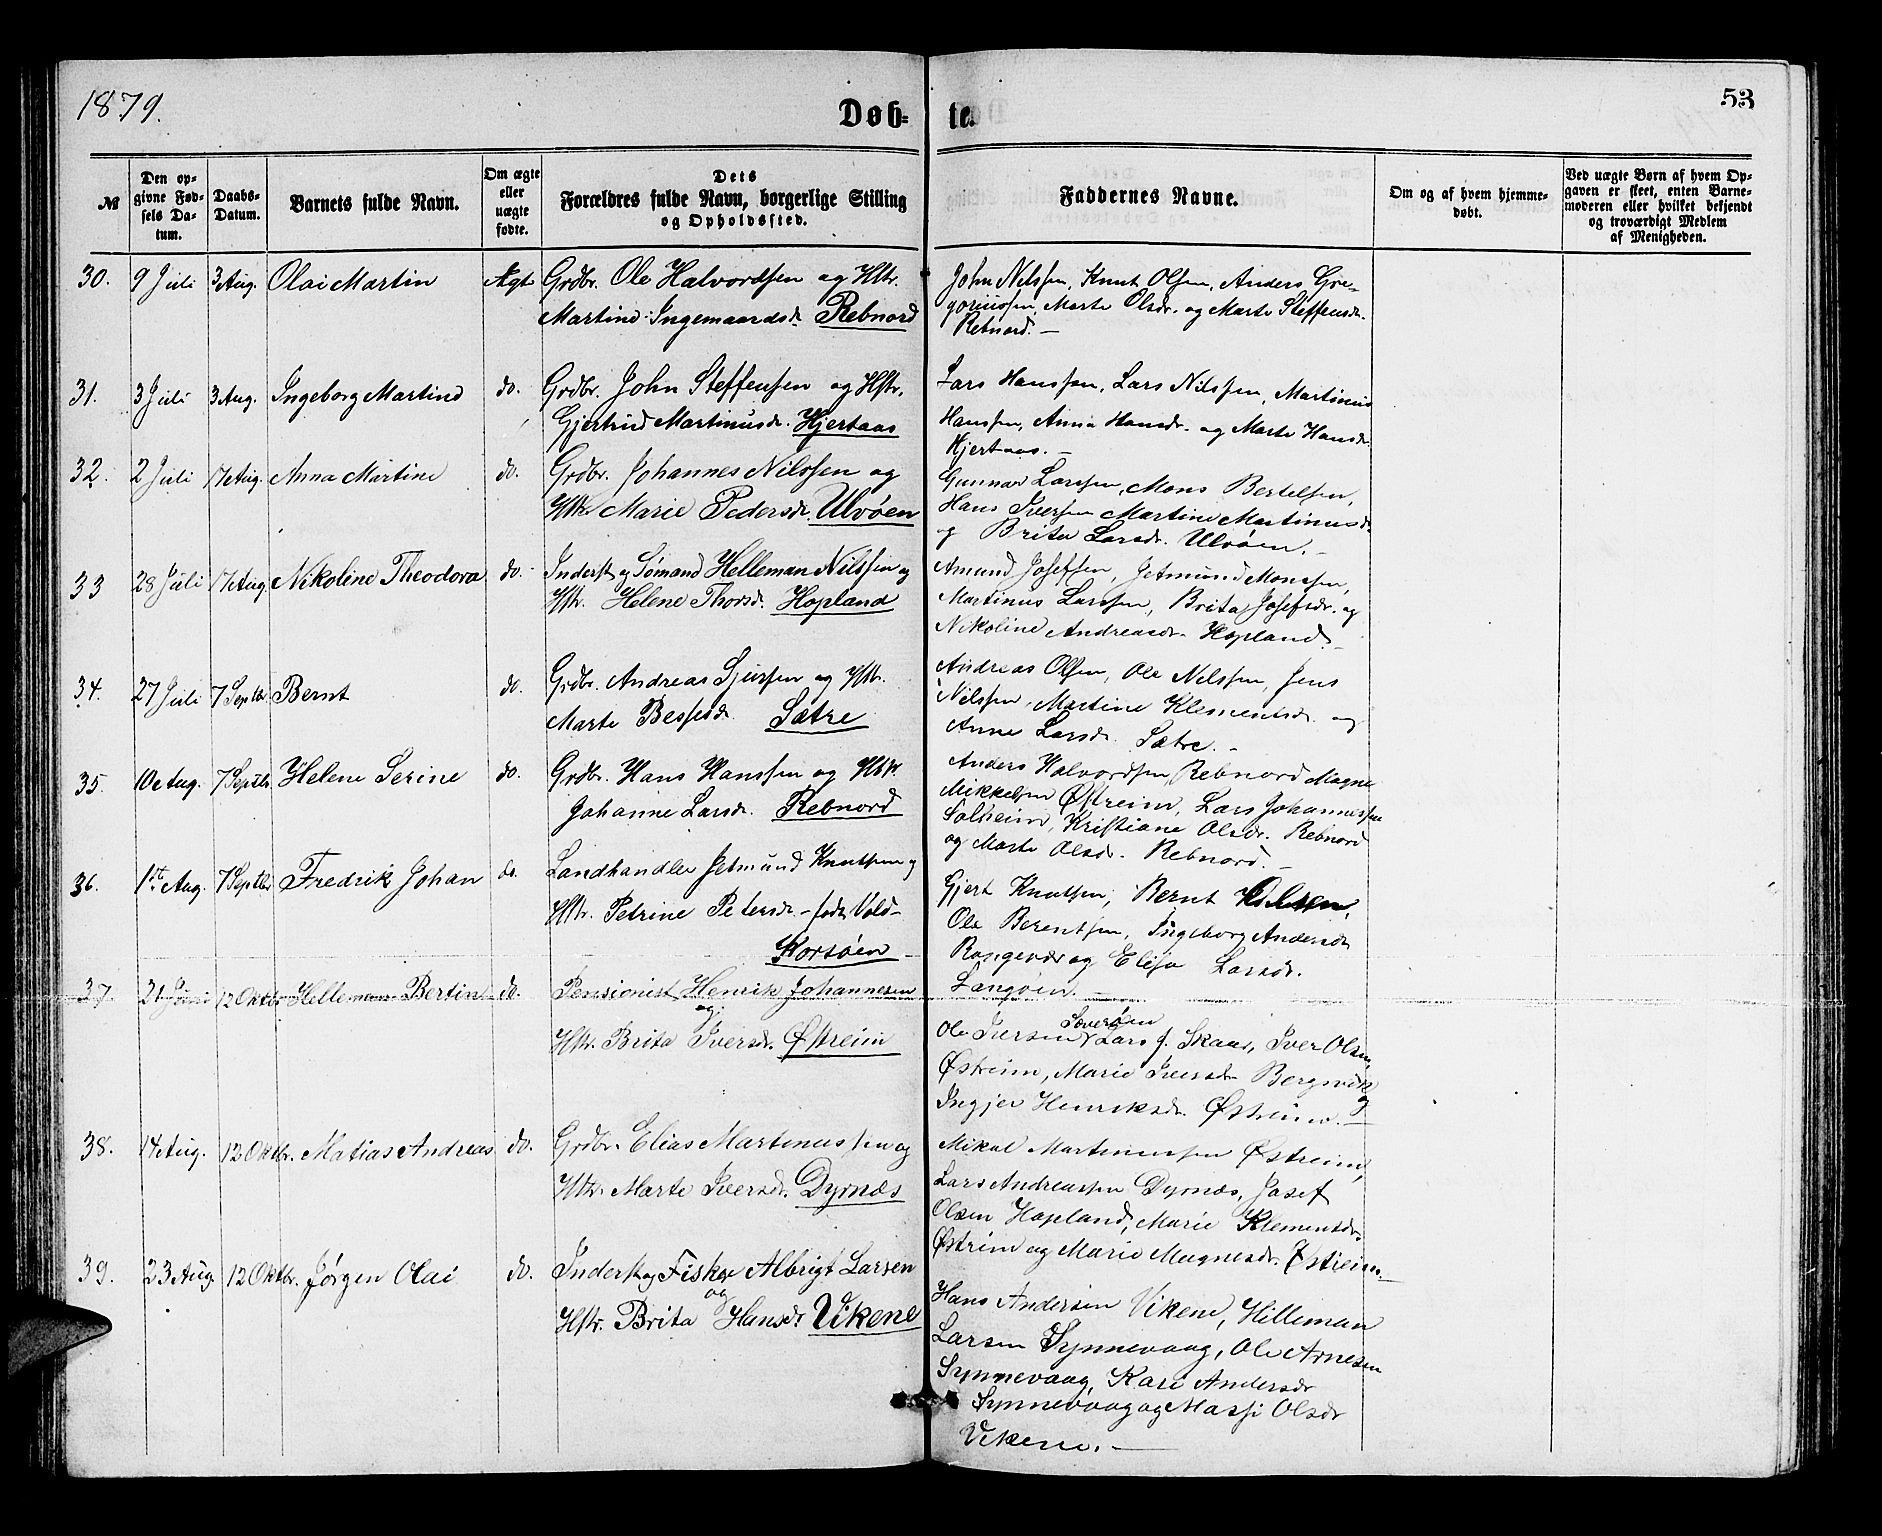 1879.
Døb-
te.
53
№
Den op-
givne Fød-
sels Da-
tum.
Daabs-
Datum.
Barnets fulde Navn.
Om ægte
eller
uægte
fødte.
Dets
Forældres fulde Navn, borgerlige Stilling
og Opholdssted.
Faddernes Navne.
Om og af hvem hjemme-
døbt.
Ved uægte Børn af hvem Op-
gaven er skeet, enten Barne-
moderen eller hvilket bekjendt
og troværdigt Medlem
af Menigheden.
30. 9 Juli 3 Aug. Olai Martin Ægte Grdbr. Ole Halvordsen og Hstr.
Martine Ingemaardsdr. Rebnord
John Nilssen, Knut Olsen, Anders Gre-
goriussen, Marte Olsdr. og Marte Steffensdr.
Rebnord. —
31. 3 Juli 3 Aug. Ingeborg Martine do. Grdbr. John Steffensen og Hstr.
Gjertrud Martinusdr. Hjertaas
Lars Hanssen, Lars Nilssen, Martinus
Hanssen, Anna Hansdr. og Marte Hansdr.
Hjertaas. —
32. 2 Juli 17e Aug. Anna Martine do. Grdbr. Johannes Nilssen og
Hstr. Marie Pedersdr. Ulvøen
Gunnar Larssen, Mons Bertelsen,
Hans Iversen Martine Martinusdr.
og Brita Larsdr. Ulvøen. —
33 28 Juli 17e Aug Nikoline Theodora do. Inderst og Sømand Helleman Nilssen og
Hstr. Helene Thorsdr. Hopland
Amund Josefsen, Jetmund Monssen,
Martinus Larssen, Brita Josefsdr. og
Nikoline Andreasdr. Hopland. —
34. 27 Juli 7 Septbr Bernt do. Grdbr. Andreas Sjursen og Hstr.
Marte Besjesdr. Sætre
Andreas Olsen, Ole Nelssen, Jens
Nilssen, Martine Klementsdr. og
Anne Larsdr. Sætre. —
35. 10e Aug. 7 Septbr. Helene Serine do. Grdbr. Hans Hanssen og Hstr.
Johanne Larsdr. Rebnord
Anders Halvordsen, Rebnord Magne
Mikkelsen Østreim, Lars Johannessen
Solheim, Kristiane Olsdr. Rebnord
og Marte Olsdr. Rebnord. —
36. 1st Aug. 7 Septbr Fredrik Johan do. Landhandler Jetmund Knutsen og
Hstr. Petrine Petersdr. — født Vold —
Korsøen —
Gjert Knutsen, Bernt Olsen,
Ole Berentsen, Ingeborg Andersdr.
Rongevær og Elisa Larsdr.
Langøen. —
37. 21 Juni 12 Oktbr Helleman Bertin do. Pensionist Henrik Johannesen
og
Hstr. Brita Iversdr. Østreim
Sæverøen
Ole Iversen Lars J. Skaar, Iver Olsen,
Østreim, Marie Iversdr. Bergsvik og
Ingjer Henriksdr. Østreim. —
38. 14 Aug. 12 Oktbr. Matias Andreas do. Grdbr. Elias Martinussen og
Hstr. Marte Iversdr. Dyrnæs
Mikal Martinussen Østreim,
Lars Andreassen Dyrnæs, Josef
Olsen Hopland, Marie Klementsdr.
Østreim og Marie Magnesdr. Østreim. —
39. 23 Aug 12 Oktbr. Jørgen Olai do. Inderst og Fisker Albrigt Larsen
og
Hstr. Brita Hansdr. Vikene
Hans Andersen Vikene, Hilleman
Larsen Synnevaag, Ole Arnesen
Synnevaag, Kari Andersdr
Synnevaag og Massi Olsdr
Vikene. —